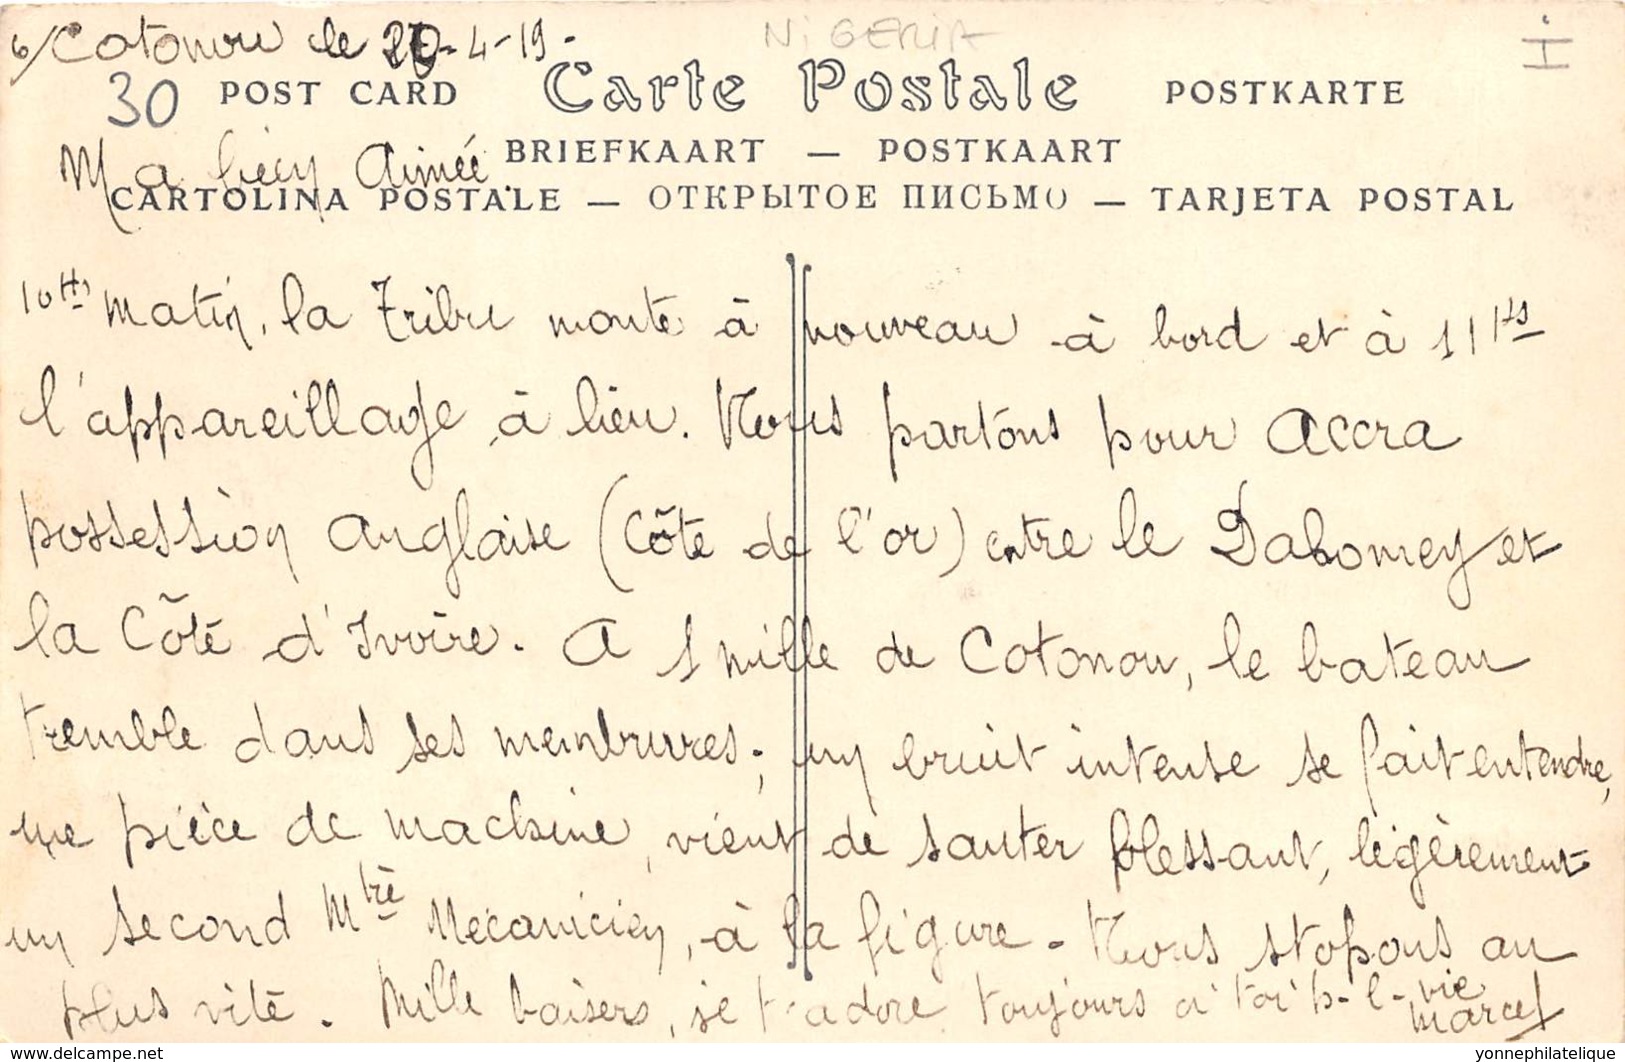 6/ Cotonou le 20-4-19-
NIGERIA
I
30
POST CARD Carte Postale POSTKARTE
BRIEFKAART — POSTKAART
CARTOLINA POSTALE — ОТКРЫТОЕ ПИСЬМО — TARJETA POSTAL
Ma bien Aimée.
10Hs matin, la Tribu monte à nouveau à bord et à 11Hs
l'appareillage à lieu. Nous partons pour Accra
possession Anglaise (Côte de l'or) entre le Dahomey et
la Côte d'Ivoire. A 1 mille de Cotonou, le bateau
tremble dans ses membrures; un bruit intense se fait entendre,
une pièce de machine, vient de sauter blessant, légèrement
un second Mtre Mécanicien, à la figure - Nous stopons au
plus vite. Mille baisers, je t'adore toujours à toi p-l-vie
Marcel
yonnephilatelie.com
yonnephilatelique